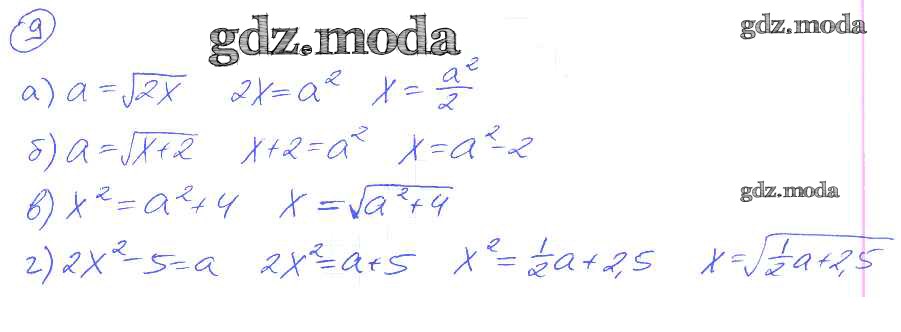 9
gdz.moda
gdz.moda
а) a = √2x   2x = a²   x = a²/2
б) a = √x+2   x+2 = a²   x = a² - 2
в) x² = a² + 4   x = √a²+4
gdz.moda
г) 2x² - 5 = a   2x² = a + 5   x² = 1/2 a + 2,5   x = √1/2 a + 2,5